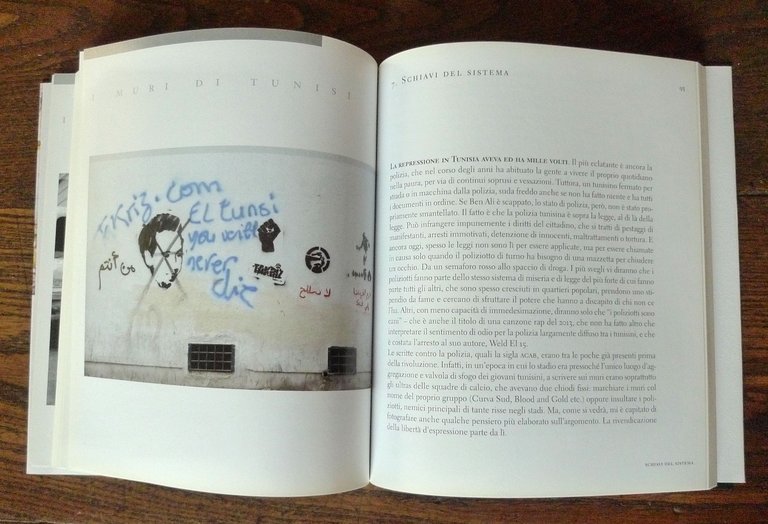 I MURI DI TUNISI
Fkriz.com
El tunsi
you will
never
die
من أنتم
TAKRIZ
7. SCHIAVI DEL SISTEMA
95
LA REPRESSIONE IN TUNISIA AVEVA ED HA MILLE VOLTI. Il più eclatante è ancora la
polizia, che nel corso degli anni ha abituato la gente a vivere il proprio quotidiano
nella paura, per via di continui soprusi e vessazioni. Tuttora, un tunisino fermato per
strada o in macchina dalla polizia, suda freddo anche se non ha fatto niente e ha tutti
i documenti in ordine. Se Ben Ali è scappato, lo stato di polizia, però, non è stato pro-
priamente smantellato. Il fatto è che la polizia tunisina è sopra la legge, al di là della
legge. Può infrangere impunemente i diritti del cittadino, che si tratti di pestaggi di
manifestanti, arresti immotivati, detenzione di innocenti, maltrattamenti o tortura. E
ancora oggi, spesso le leggi non sono lì per essere applicate, ma per essere chiamate
in causa solo quando il poliziotto di turno ha bisogno di una mazzetta per chiudere
un occhio. Da un semaforo rosso allo spaccio di droga. I più svegli vi diranno che i
poliziotti fanno parte dello stesso sistema di miseria e di legge del più forte di cui fanno
parte tutti gli altri, che sono spesso cresciuti in quartieri popolari, prendono uno sti-
pendio da fame e cercano di sfruttare il potere che hanno a discapito di chi non ce
l'ha. Altri, con meno capacità di immedesimazione, diranno solo che "i poliziotti sono
cani" – che è anche il titolo di una canzone rap del 2013, che non ha fatto altro che
interpretare il sentimento di odio per la polizia largamente diffuso tra i tunisini, e che
è costata l'arresto al suo autore, Weld El 15.
Le scritte contro la polizia, quali la sigla ACAB, erano tra le poche già presenti prima
della rivoluzione. Infatti, in un'epoca in cui lo stadio era pressoché l'unico luogo d'ag-
gregazione e valvola di sfogo dei giovani tunisini, a scrivere sui muri erano soprattutto
gli ultras delle squadre di calcio, che avevano due chiodi fissi: marchiare i muri col
nome del proprio gruppo (Curva Sud, Blood and Gold etc.) oppure insultare i poli-
ziotti, nemici principali di tante risse negli stadi. Ma, come si vedrà, mi è capitato di
fotografare anche qualche pensiero più elaborato sull'argomento. La rivendicazione
della libertà d'espressione parte da lì.
SCHIAVI DEL SISTEMA